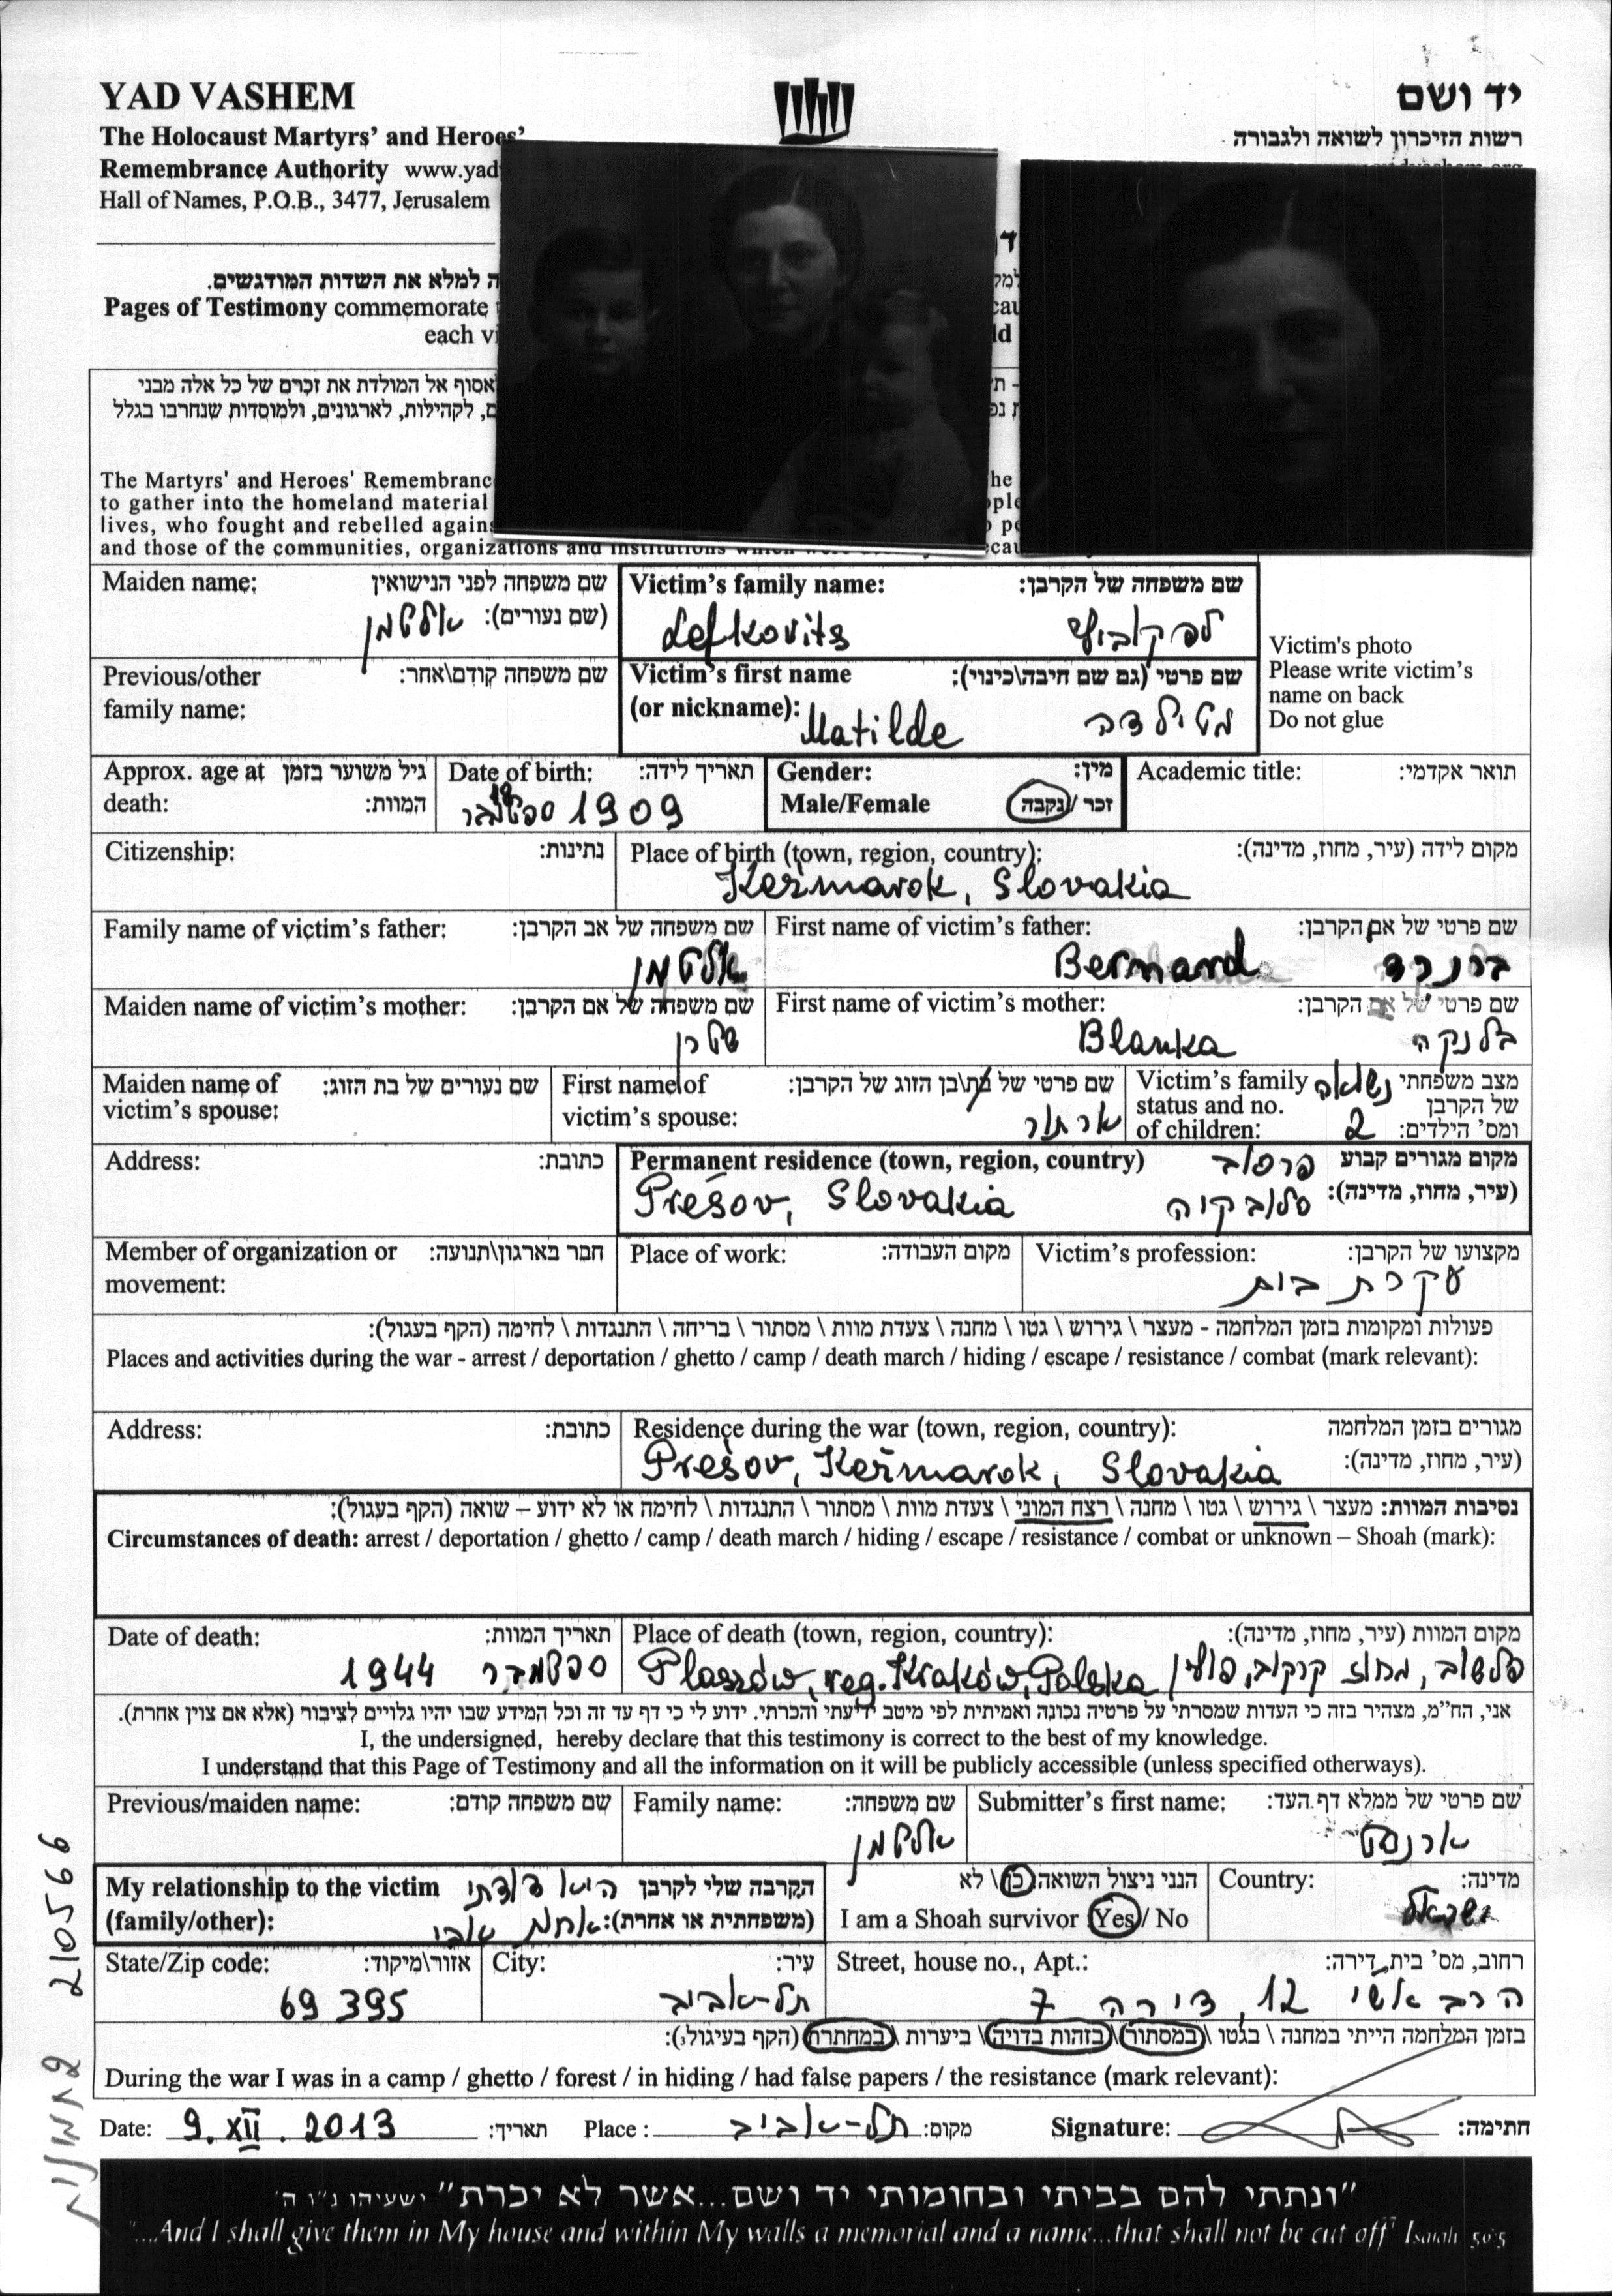 YAD VASHEM
יד ושם
The Holocaust Martyrs' and Heroes'
רשות הזיכרון לשואה ולגבורה
Remembrance Authority www.yad
Hall of Names, P.O.B., 3477, Jerusalem
ה למלא את השדות המודגשים.
Pages of Testimony commemorate
each vi
לאסוף אל המולדת את זכרם של כל אלה מבני
ם, לקהילות, לארגונים, ולמוסדות שנחרבו בגלל
The Martyrs' and Heroes' Remembranc
to gather into the homeland material
lives, who fought and rebelled agains
and those of the communities, organizations and institutions
Maiden name: שם משפחה לפני הנישואין
(שם נעורים): אלטמן
Victim's family name: שם משפחה של הקרבן:
Lefkovits לפקוביץ
Previous/other שם משפחה קודם\אחר:
family name:
Victim's first name שם פרטי (גם שם חיבה\כינוי):
(or nickname): Matilde מטילדה
Victim's photo
Please write victim's
name on back
Do not glue
Approx. age at גיל משוער בזמן
death: המוות:
Date of birth: תאריך לידה:
18 ספטמבר 1909
Gender: מין:
Male/Female זכר / נקבה
Academic title: תואר אקדמי:
Citizenship: נתינות:
Place of birth (town, region, country): מקום לידה (עיר, מחוז, מדינה):
Kežmarok, Slovakia
Family name of victim's father: שם משפחה של אב הקרבן:
אלטמן
First name of victim's father: שם פרטי של אב הקרבן:
Bernard ברנרד
Maiden name of victim's mother: שם משפחה של אם הקרבן:
שטרן
First name of victim's mother: שם פרטי של אם הקרבן:
Blanka בלנקה
Maiden name of שם נעורים של בת הזוג:
victim's spouse:
First name of שם פרטי של בת\בן הזוג של הקרבן:
victim's spouse: ארתור
Victim's family מצב משפחתי נשואה
status and no. של הקרבן
of children: ומס' הילדים: 2
Address: כתובת:
Permanent residence (town, region, country) מקום מגורים קבוע פרשוב
Prešov, Slovakia (עיר, מחוז, מדינה): סלובקיה
Member of organization or חבר בארגון\תנועה:
movement:
Place of work: מקום העבודה:
Victim's profession: מקצועו של הקרבן:
עקרת בית
פעולות ומקומות בזמן המלחמה - מעצר \ גירוש \ גטו \ מחנה \ צעדת מוות \ מסתור \ בריחה \ התנגדות \ לחימה (הקף בעגול):
Places and activities during the war - arrest / deportation / ghetto / camp / death march / hiding / escape / resistance / combat (mark relevant):
Address: כתובת:
Residence during the war (town, region, country): מגורים בזמן המלחמה
Prešov, Kežmarok, Slovakia (עיר, מחוז, מדינה):
נסיבות המוות: מעצר \ גירוש \ גטו \ מחנה \ רצח המוני \ צעדת מוות \ מסתור \ התנגדות \ לחימה או לא ידוע – שואה (הקף בעגול):
Circumstances of death: arrest / deportation / ghetto / camp / death march / hiding / escape / resistance / combat or unknown – Shoah (mark):
Date of death: תאריך המוות:
ספטמבר 1944
Place of death (town, region, country): מקום המוות (עיר, מחוז, מדינה):
Plaszów, reg. Kraków, Polska פלשוב, מחוז קרקוב, פולין
אני, הח"מ, מצהיר בזה כי העדות שמסרתי על פרטיה נכונה ואמיתית לפי מיטב ידיעתי והכרתי. ידוע לי כי דף עד זה וכל המידע שבו יהיו גלויים לציבור (אלא אם צוין אחרת).
I, the undersigned, hereby declare that this testimony is correct to the best of my knowledge.
I understand that this Page of Testimony and all the information on it will be publicly accessible (unless specified otherways).
Previous/maiden name: שם משפחה קודם:
Family name: שם משפחה:
אלטמן
Submitter's first name: שם פרטי של ממלא דף העד:
ארנסט
My relationship to the victim הקרבה שלי לקרבן היא דודתי
(family/other): (משפחתית או אחרת): אחת אבי
הנני ניצול השואה כן \ לא
I am a Shoah survivor Yes / No
Country: מדינה:
ישראל
State/Zip code: אזור\מיקוד:
69395
City: עיר:
תל-אביב
Street, house no., Apt.: רחוב, מס' בית, דירה:
הרב אשי 12, דירה 7
בזמן המלחמה הייתי במחנה \ בגטו \ במסתור \ בזהות בדויה \ ביערות \ במחתרת (הקף בעיגול):
During the war I was in a camp / ghetto / forest / in hiding / had false papers / the resistance (mark relevant):
Date: 9. XII. 2013 תאריך: Place: תל-אביב מקום: Signature: חתימה:
2 תמונות 210566
"ונתתי להם בביתי ובחומותי יד ושם...אשר לא יכרת" ישעיהו נ"ו ה'
"...And I shall give them in My house and within My walls a memorial and a name...that shall not be cut off" Isaiah 56:5